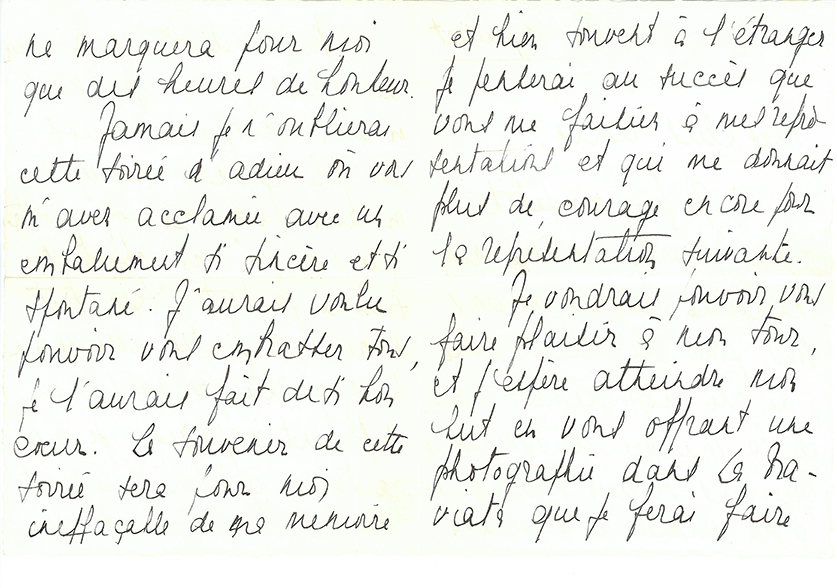 ne marquera pour moi
que des heures de bonheur.
Jamais je n'oublierai
cette soirée d'adieu où vous
m'avez acclamée avec un
emballement si sincère et si
spontané. J'aurais voulu
pouvoir vous embrasser tous,
je l'aurais fait de si bon
cœur. Le souvenir de cette
soirée sera pour moi
ineffaçable de ma memoire
et bien souvent à l'étranger
je penserai au succès que
vous me faisiez à mes repré-
sentations et qui me donnait
plus de courage encore pour
la représentation suivante.
Je voudrais pouvoir vous
faire plaisir à mon tour,
et j'espère atteindre mon
but en vous offrant une
photographie dans La Tra-
viata que je ferai faire